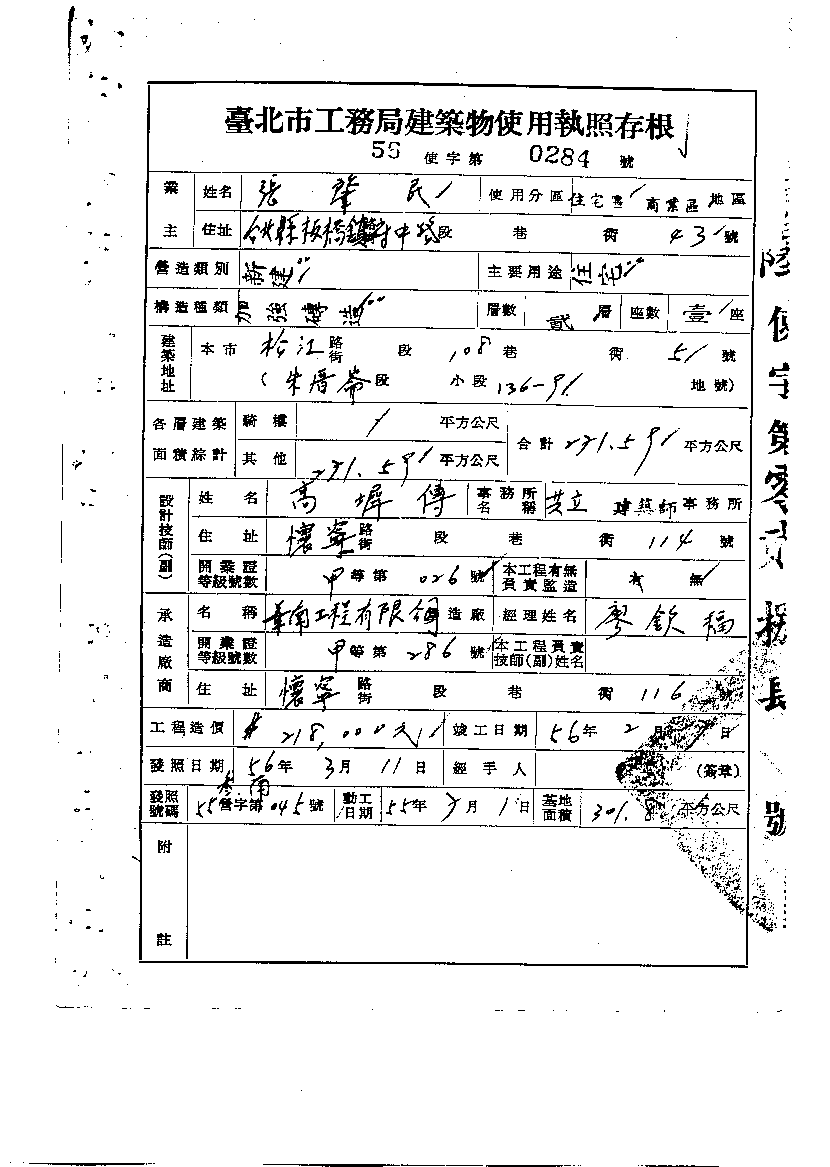 臺北市工務局建築物使用執照存根
56 使字第 0284 號
業主 姓名 張肇民 使用分區 住宅區 商業區 地區
住址 台北縣板橋鎮府中路 段 巷 街 43 號
營造類別 新建 主要用途 住宅
構造種類 加強磚造 層數 貳 層 座數 壹 座
建築地址 本市 松江 路街 段 108 巷 街 51 號
(朱厝崙 段 小段 136-91 地號)
各層建築面積綜計 騎樓 / 平方公尺 合計 221.59 平方公尺
其他 221.59 平方公尺
設計技師(副) 姓名 高墀傳 事務所名稱 共立 建築師事務所
住址 懷寧 路街 段 巷 街 114 號
開業證等級號數 甲等第 026 號 本工程有無負責監造 有 無
承造廠商 名稱 華南工程有限公司 造廠 經理姓名 廖欽福
開業證等級號數 甲等第 286 號 本工程負責技師(副)姓名
住址 懷寧 路街 段 巷 街 116 號
工程造價 218,000元 竣工日期 56年2月 日
發照日期 56年3月11日 經手人 (簽章)
發照號碼 55 營字第 045 號 動工日期 55年 月1日 基地面積 301.8 平方公尺
附註
使字第零貳 號